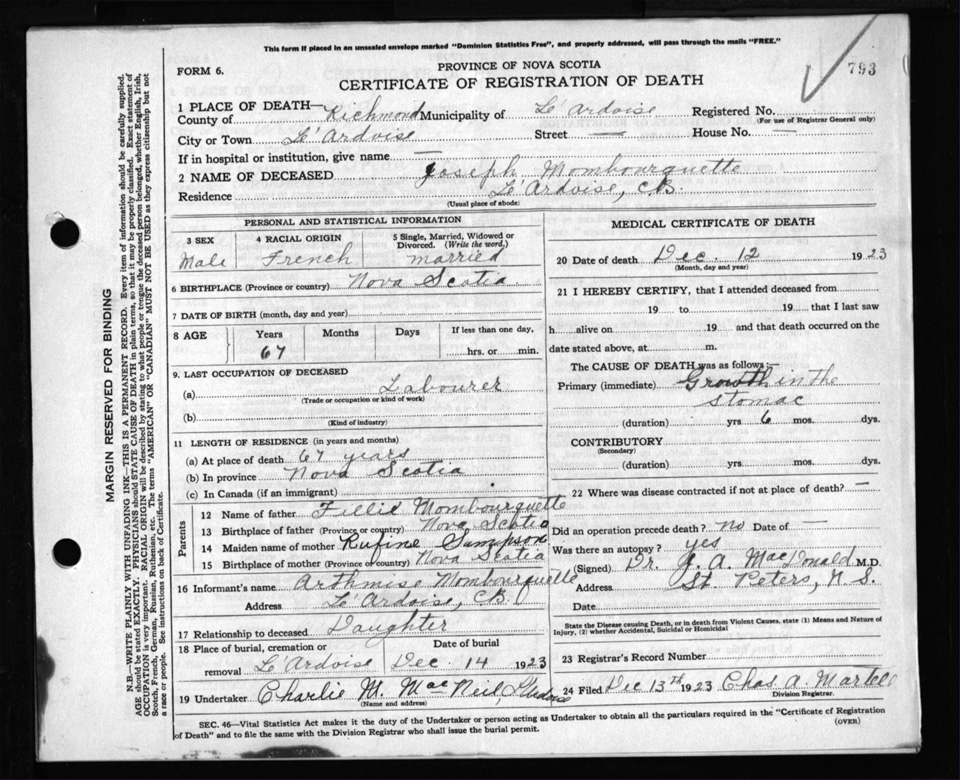 This form if placed in an unsealed envelope marked "Dominion Statistics Free", and properly addressed, will pass through the mails "FREE."
793
FORM 6.
PROVINCE OF NOVA SCOTIA
CERTIFICATE OF REGISTRATION OF DEATH
1 PLACE OF DEATH—
County of Richmond Municipality of L'Ardoise Registered No.
(For use of Registrar General only)
City or Town L'Ardoise Street — House No. —
If in hospital or institution, give name —
2 NAME OF DECEASED Joseph Mombourquette
Residence L'Ardoise, C.B.
(Usual place of abode)
PERSONAL AND STATISTICAL INFORMATION
3 SEX 4 RACIAL ORIGIN 5 Single, Married, Widowed or
Divorced. (Write the word.)
Male French married
6 BIRTHPLACE (Province or country) Nova Scotia
7 DATE OF BIRTH (month, day and year)
8 AGE Years Months Days If less than one day,
67 hrs. or min.
9. LAST OCCUPATION OF DECEASED
(a) Labourer
(Trade or occupation or kind of work)
(b)
(Kind of industry)
11 LENGTH OF RESIDENCE (in years and months)
(a) At place of death 67 years
(b) In province Nova Scotia
(c) In Canada (if an immigrant)
Parents
12 Name of father Fillie Mombourquette
13 Birthplace of father (Province or country) Nova Scotia
14 Maiden name of mother Rufine Sampson
15 Birthplace of mother (Province or country) Nova Scotia
16 Informant's name Arthmise Mombourquette
Address L'Ardoise, C.B.
17 Relationship to deceased Daughter
18 Place of burial, cremation or Date of burial
removal L'Ardoise Dec. 14 1923
19 Undertaker Charlie M. MacNeil, L'Ardoise
(Name and address)
MEDICAL CERTIFICATE OF DEATH
20 Date of death Dec. 12 1923
(Month, day and year)
21 I HEREBY CERTIFY, that I attended deceased from
19 to 19 that I last saw
h alive on 19 and that death occurred on the
date stated above, at m.
The CAUSE OF DEATH was as follows:
Primary (immediate) Growth in the
stomac
(duration) yrs. 6 mos. dys.
CONTRIBUTORY
(Secondary)
(duration) yrs. mos. dys.
22 Where was disease contracted if not at place of death? —
Did an operation precede death? no Date of —
Was there an autopsy? yes
(Signed) Dr. J. A. MacDonald M.D.
Address St. Peters, N.S.
Date
State the Disease causing Death, or in death from Violent Causes, state (1) Means and Nature of
Injury, (2) whether Accidental, Suicidal or Homicidal
23 Registrar's Record Number
24 Filed Dec 13th 1923 Chas. A. Martell
Division Registrar.
SEC. 46—Vital Statistics Act makes it the duty of the Undertaker or person acting as Undertaker to obtain all the particulars required in the "Certificate of Registration
of Death" and to file the same with the Division Registrar who shall issue the burial permit.
(OVER)
MARGIN RESERVED FOR BINDING
N.B.—WRITE PLAINLY WITH UNFADING INK—THIS IS A PERMANENT RECORD. Every item of information should be carefully supplied.
AGE should be stated EXACTLY. PHYSICIANS should STATE CAUSE OF DEATH in plain terms, so that it may be properly classified. Exact statement of
OCCUPATION is very important. RACIAL ORIGIN will be described by stating to what people or tongue the deceased person belonged, whether English, Irish,
Scotch, French, German, Russian, Ruthenian, etc. The terms "AMERICAN" OR "CANADIAN" MUST NOT BE USED as they express citizenship but not
a race or people. See instructions on back of Certificate.